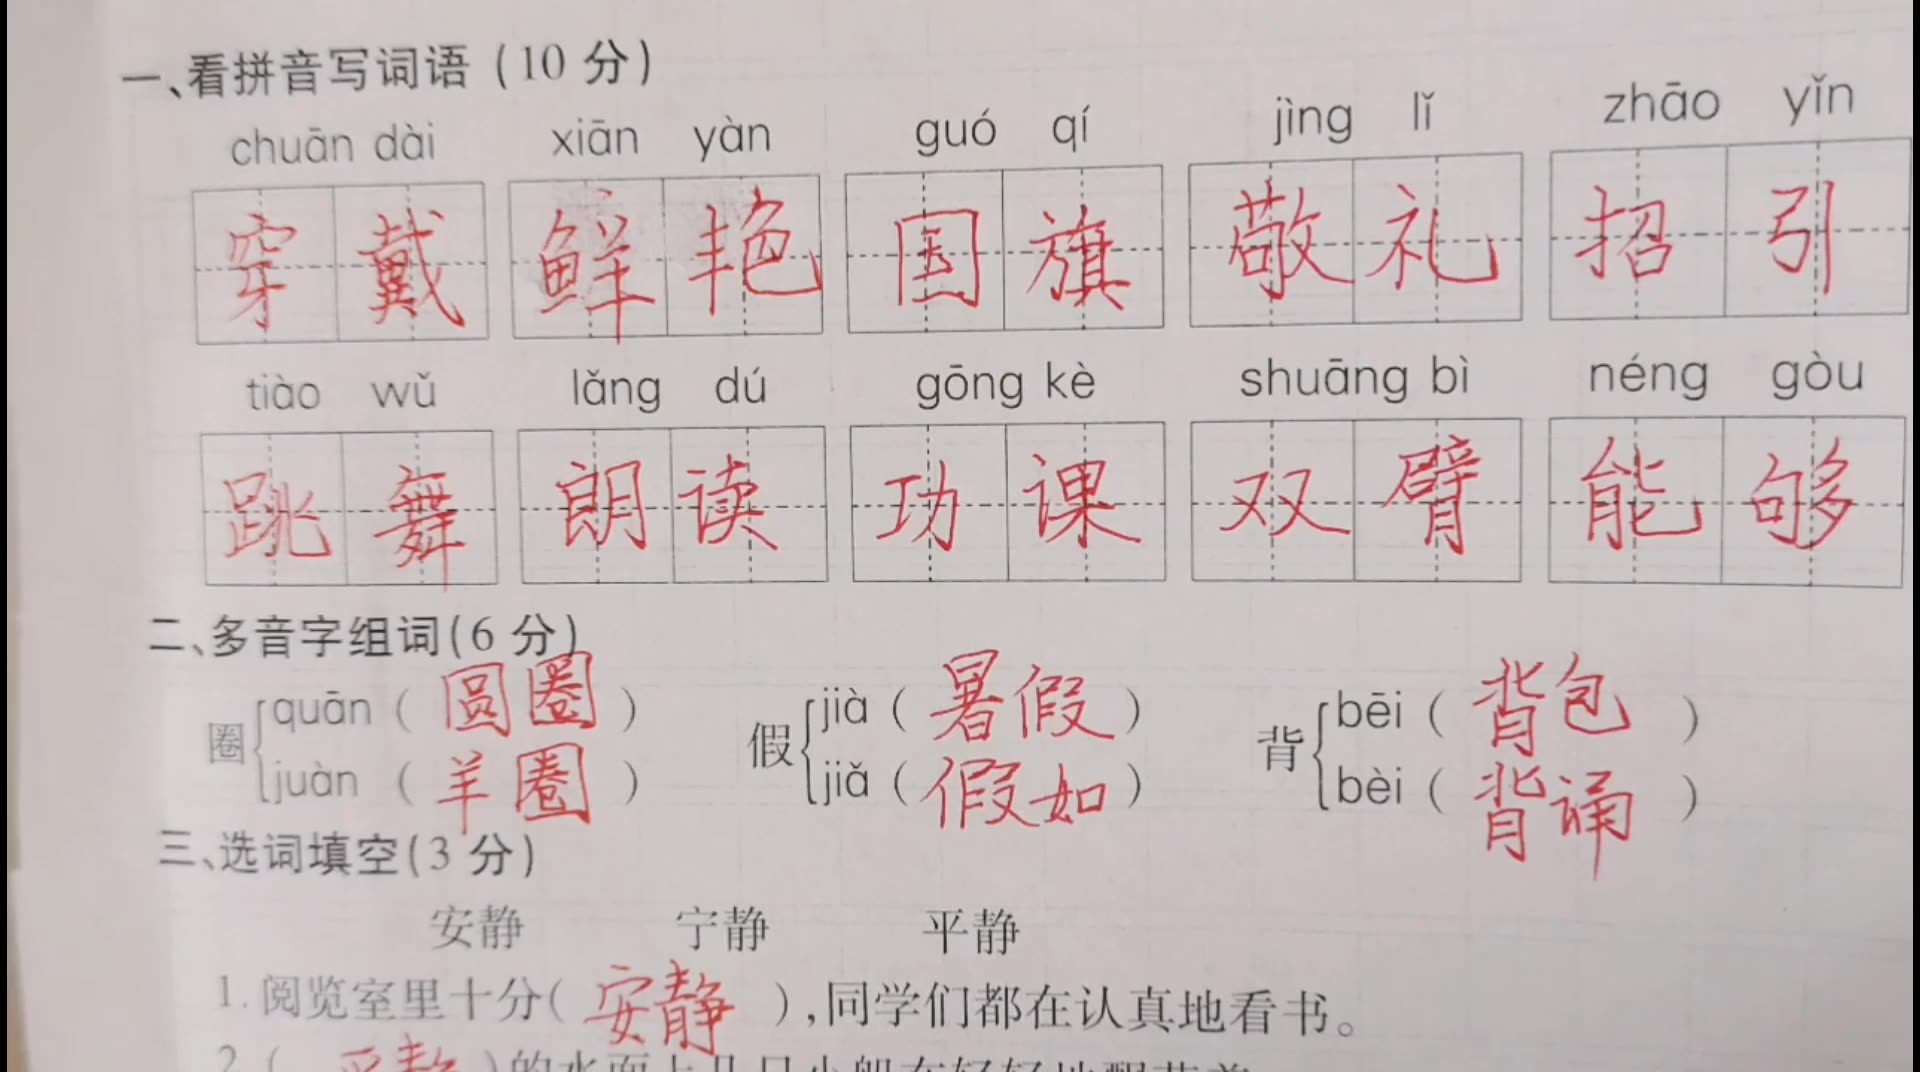 一、看拼音写词语(10分)
chuān dài xiān yàn guó qí jìng lǐ zhāo yǐn
穿戴 鲜艳 国旗 敬礼 招引
tiào wǔ lǎng dú gōng kè shuāng bì néng gòu
跳舞 朗读 功课 双臂 能够
二、多音字组词(6分)
圈 quān(圆圈) 假 jià(暑假) 背 bēi(背包)
juàn(羊圈) jiǎ(假如) bèi(背诵)
三、选词填空(3分)
安静 宁静 平静
1.阅览室里十分(安静),同学们都在认真地看书。
2.(平静)的水面上几只小船在轻轻地飘荡着